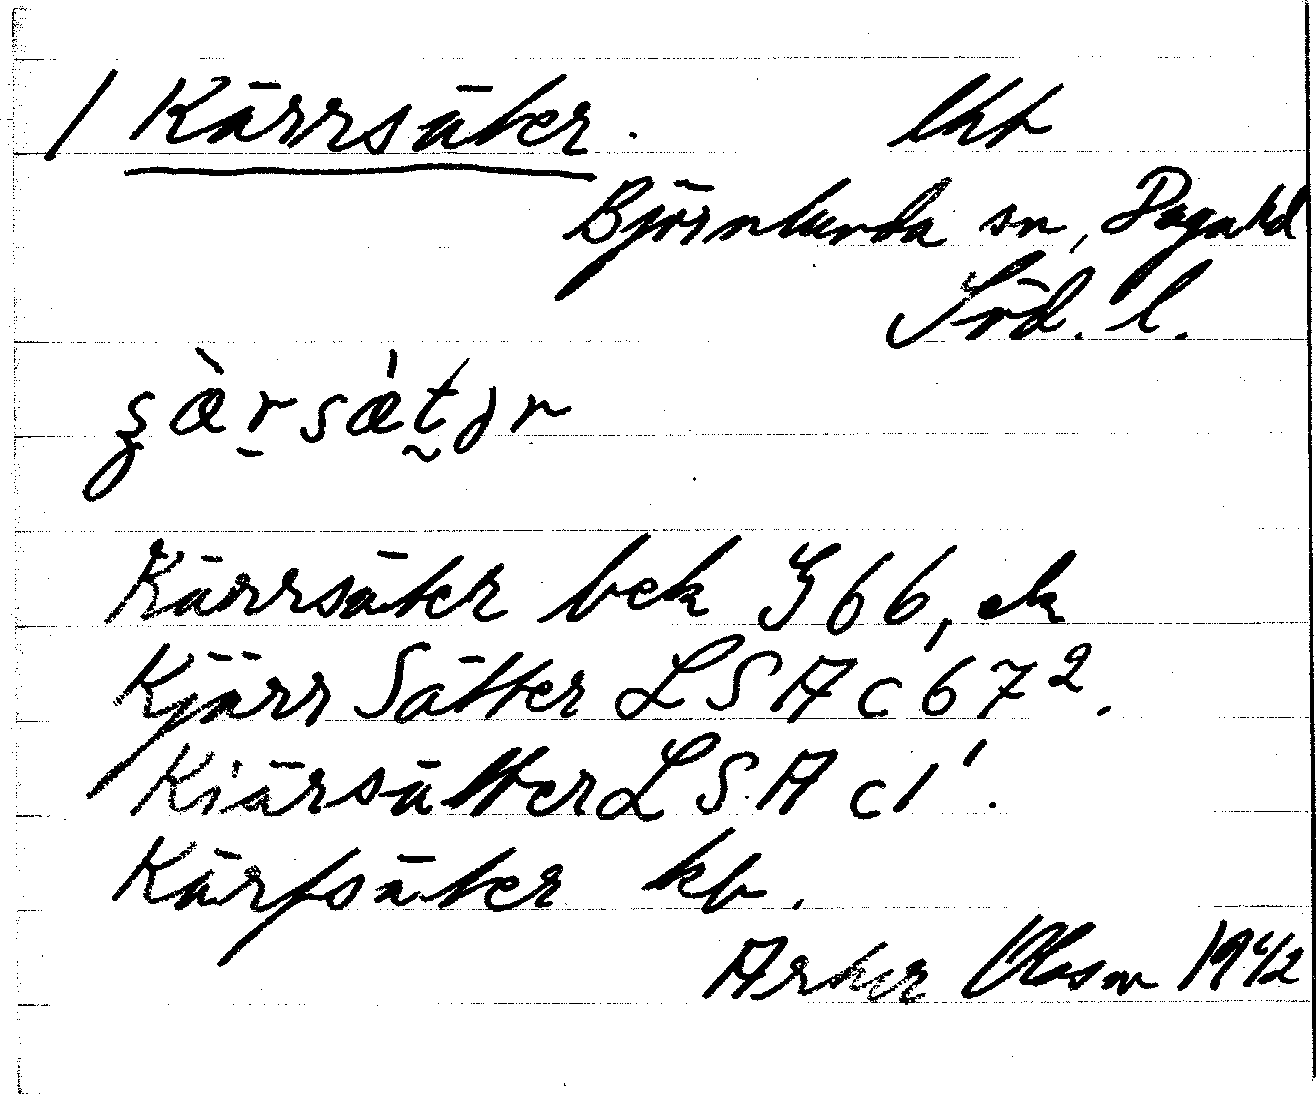 / Kärrsäter. lht
Björnlunda sn, Daga hd
Söd. l.
Kärrsäter bek G 66, ek
Kjärr Sätter LSA c 67².
Kiärsätter LSA c 1¹.
Kärfsäter kb.
Olsson 1942